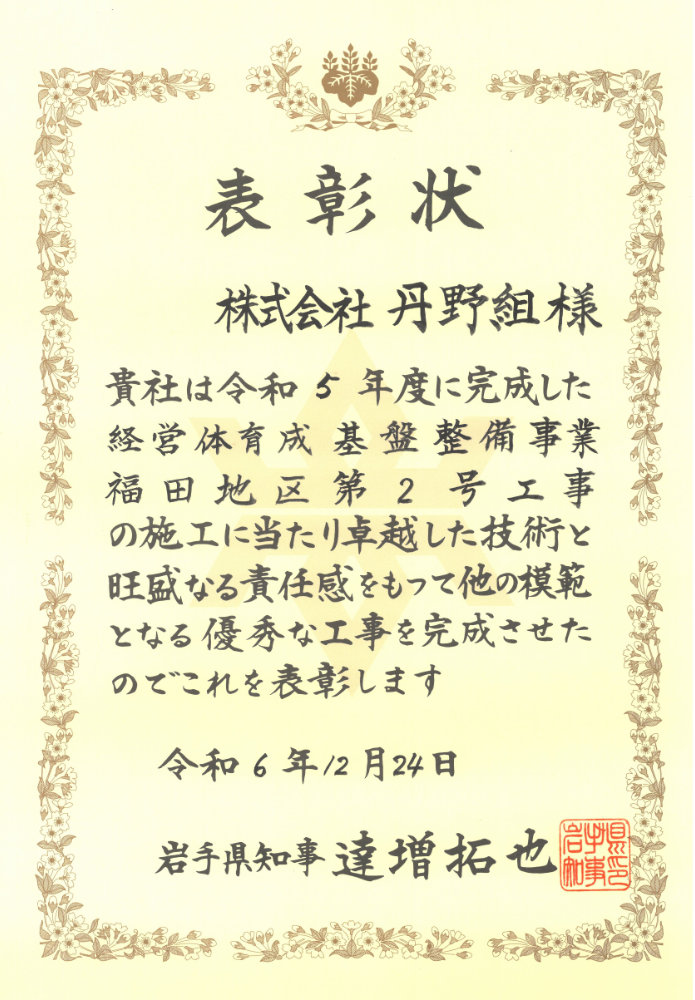 表彰状
株式会社 丹野組 様
貴社は令和 5 年度に完成した
経営体育成 基盤整備事業
福田地区第 2 号工事
の施工に当たり卓越した技術と
旺盛なる責任感をもって他の模範
となる優秀な工事を完成させた
のでこれを表彰します
令和 6 年 12 月 24 日
岩手県知事 達増拓也
岩手県知事印